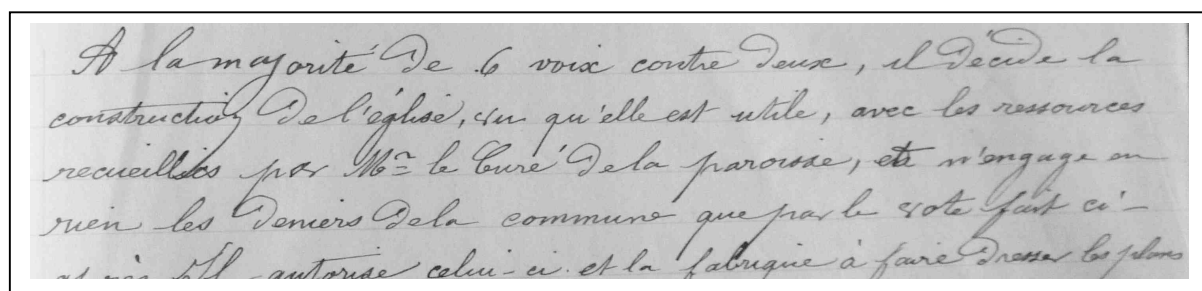 A la majorité de 6 voix contre deux, il décide la
construction de l'église, vu qu'elle est utile, avec les ressources
recueillies par Mr le Curé de la paroisse, et n'engage en
rien les deniers de la commune que par le vote fait ci-
après Il autorise celui-ci et la fabrique à faire dresser les plans